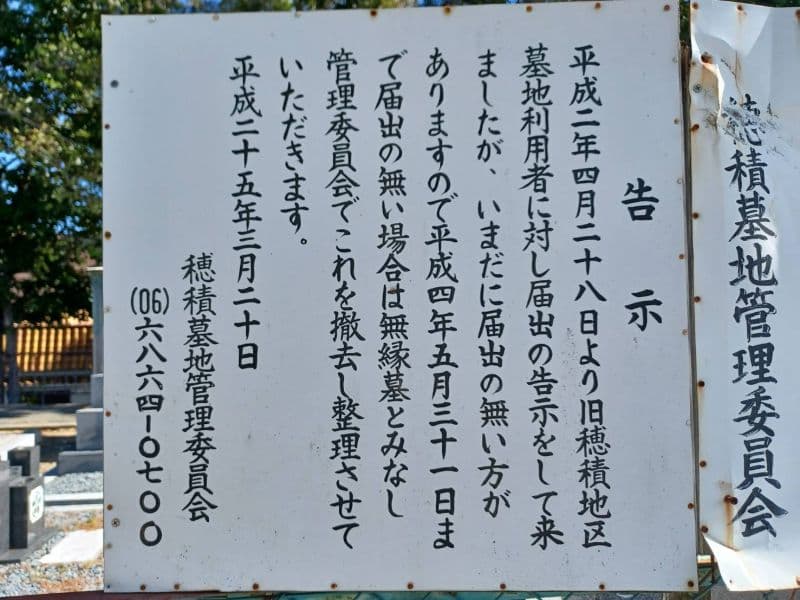 穂積墓地管理委員会
告示
平成二年四月二十八日より旧穂積地区
墓地利用者に対し届出の告示をして来
ましたが、いまだに届出の無い方が
ありますので平成四年五月三十一日ま
で届出の無い場合は無縁墓とみなし
管理委員会でこれを撤去し整理させて
いただきます。
平成二十五年三月二十日
穂積墓地管理委員会
(06)六八六四-０七００